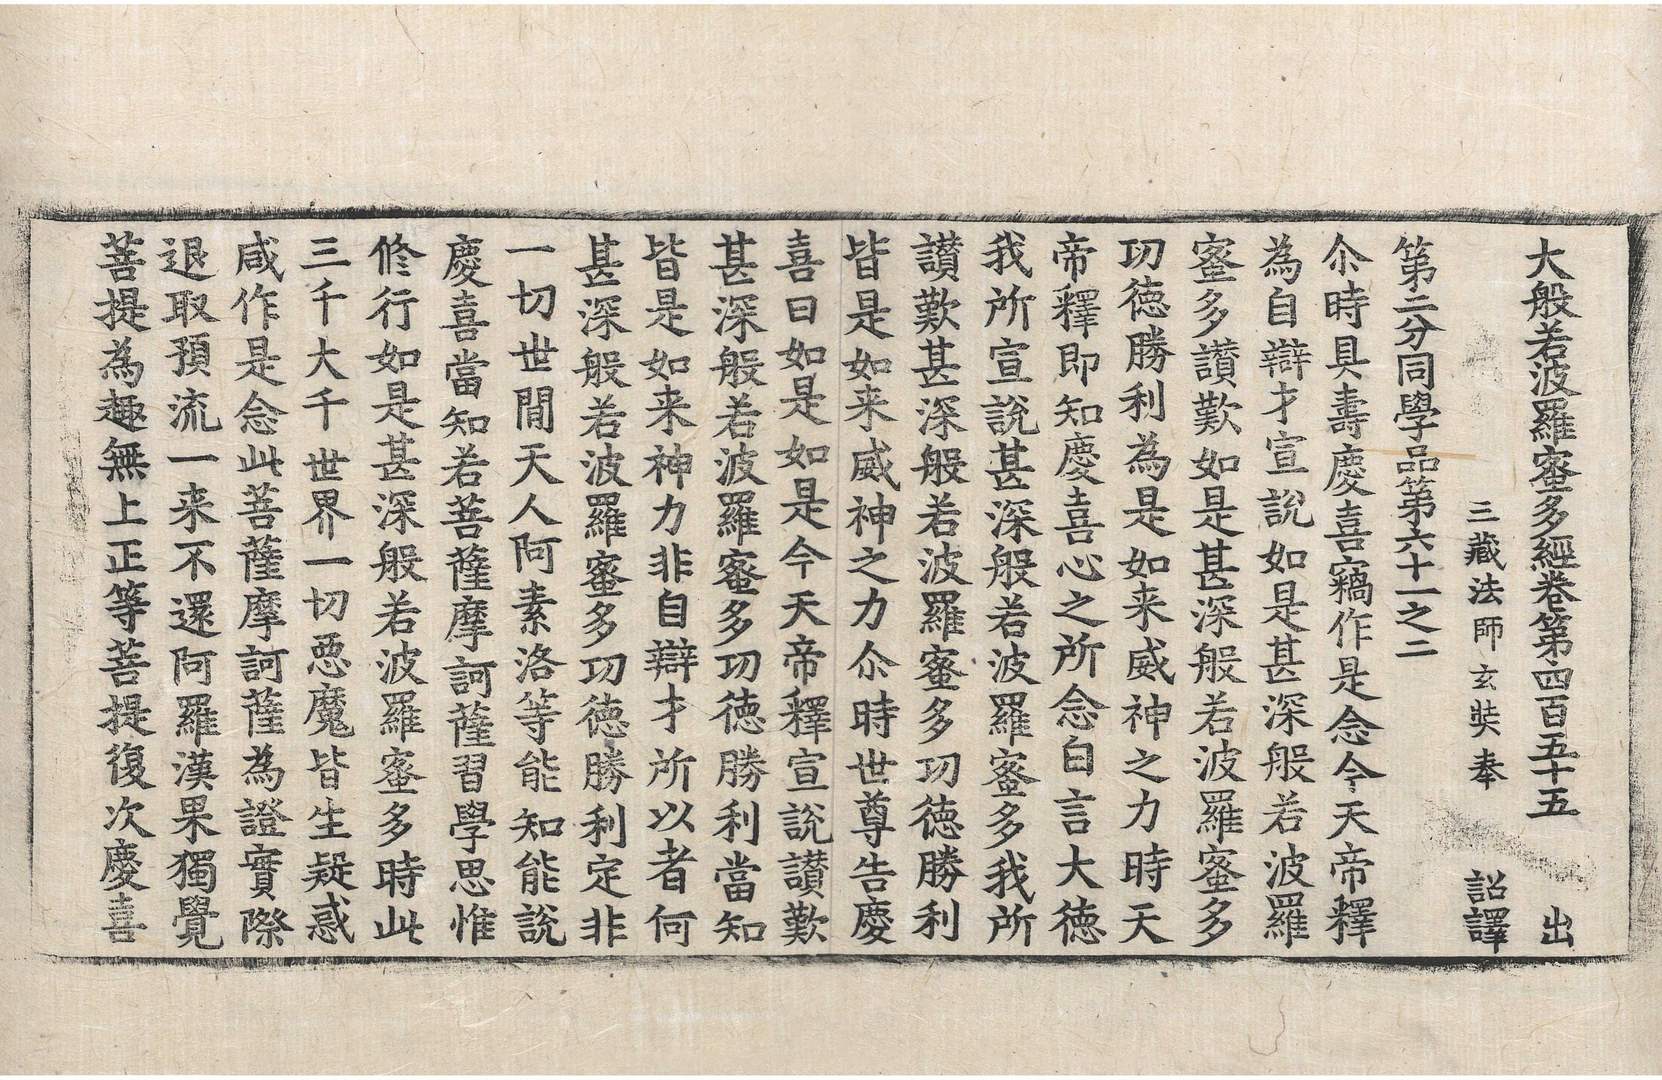 大般若波羅蜜多經卷第四百五十五 出
三藏法師玄奘奉 詔譯
第二分同學品第六十一之二
尒時具壽慶喜竊作是念今天帝釋
為自辯才宣說如是甚深般若波羅
蜜多讃歎如是甚深般若波羅蜜多
功德勝利為是如来威神之力時天
帝釋即知慶喜心之所念白言大德
我所宣說甚深般若波羅蜜多我所
讃歎甚深般若波羅蜜多功德勝利
皆是如来威神之力尒時世尊告慶
喜曰如是如是今天帝釋宣說讃歎
甚深般若波羅蜜多功德勝利當知
皆是如来神力非自辯才所以者何
甚深般若波羅蜜多功德勝利定非
一切世間天人阿素洛等能知能說
慶喜當知若菩薩摩訶薩習學思惟
修行如是甚深般若波羅蜜多時此
三千大千世界一切惡魔皆生疑惑
咸作是念此菩薩摩訶薩為證實際
退取預流一来不還阿羅漢果獨覺
菩提為趣無上正等菩提復次慶喜